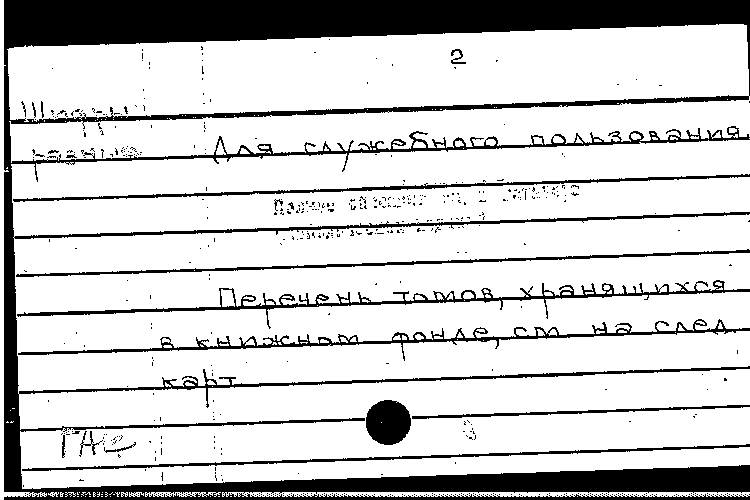 2
Шифры
разные
Для служебного пользования
Полное описание см. в
Перечень томов, хранящихся
в книжном фонде, см на след.
карт